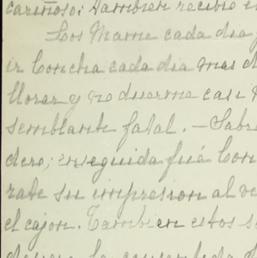 cariñoso; tambien recibió
Los Mame cada dia
ir Concha cada dia mas
llorar y no duerme casi
semblante fatal. - Sabe
dero; enseguida fué Con
rate su impresion al ve
el cajon. Tambien estos s